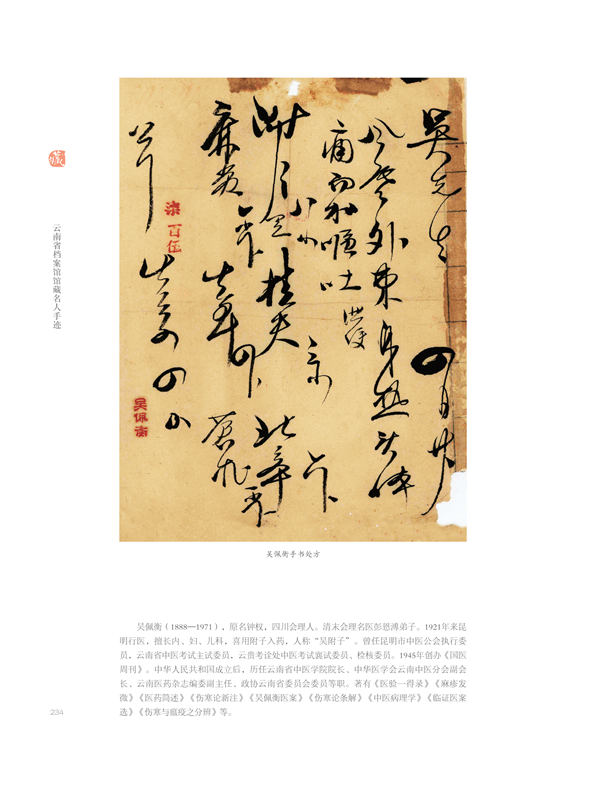 吴先生
四月廿
风寒外束身热头体
痛而加呕吐
桂尖
北辛
麻黄
苍朮
柒百伍
吴佩衡
藏
云南省档案馆馆藏名人手迹
吴佩衡手书处方
吴佩衡（1888—1971），原名钟权，四川会理人。清末会理名医彭恩溥弟子。1921年来昆
明行医，擅长内、妇、儿科，喜用附子入药，人称“吴附子”。曾任昆明市中医公会执行委
员，云南省中医考试主试委员，云贵考诠处中医考试襄试委员、检核委员。1945年创办《国医
周刊》。中华人民共和国成立后，历任云南省中医学院院长、中华医学会云南中医分会副会
长、云南医药杂志编委副主任、政协云南省委员会委员等职。著有《医验一得录》《麻疹发
微》《医药简述》《伤寒论新注》《吴佩衡医案》《伤寒论条解》《中医病理学》《临证医案
选》《伤寒与瘟疫之分辨》等。
234